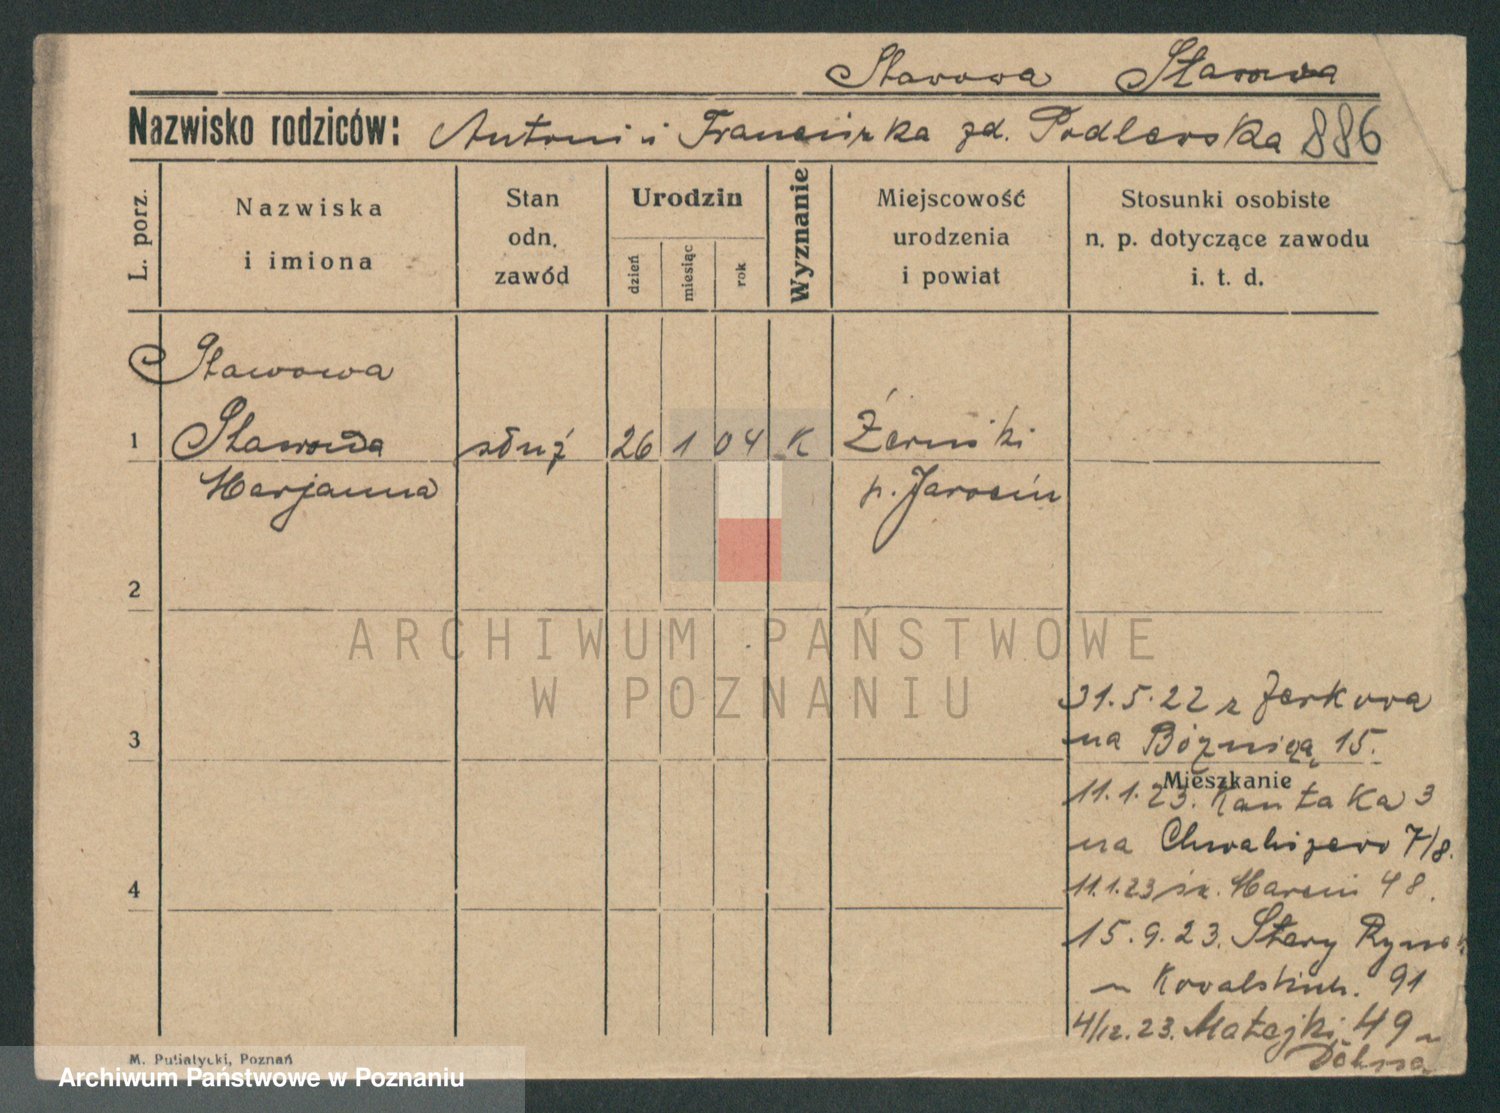 Stawowa Sławowa
Nazwisko rodziców: Antoni i Franciszka zd. Podlewska 886
L. porz.
Nazwiska
i imiona
Stan
odn.
zawód
Urodzin
dzień
miesiąc
rok
Wyznanie
Miejscowość
urodzenia
i powiat
Stosunki osobiste
n. p. dotyczące zawodu
i. t. d.
Stawowa
1 Sławowa służ 26 1 04 K Żerniki
Marjanna p. Jarocin
2
ARCHIWUM PAŃSTWOWE
W POZNANIU
31.5.22 z Jerkowa
3 na Bóżniczą 15.
Mieszkanie
11.1.23. Kantaka 3
na Chwaliszewo 7/8.
4 11.1.23 św. Marcin 48.
15.9.23. Stary Rynek
u Kowalskich. 91
4/12.23. Matejki 49 u
M. Putiatycki, Poznań
Archiwum Państwowe w Poznaniu